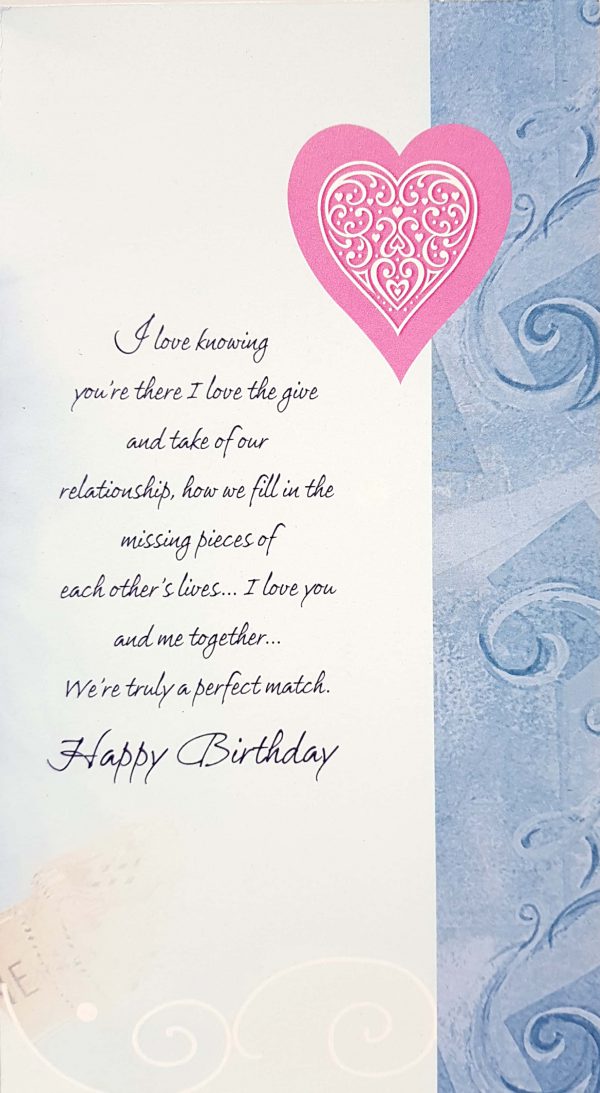 I love knowing
you're there I love the give
and take of our
relationship, how we fill in the
missing pieces of
each other's lives... I love you
and me together...
We're truly a perfect match.
Happy Birthday